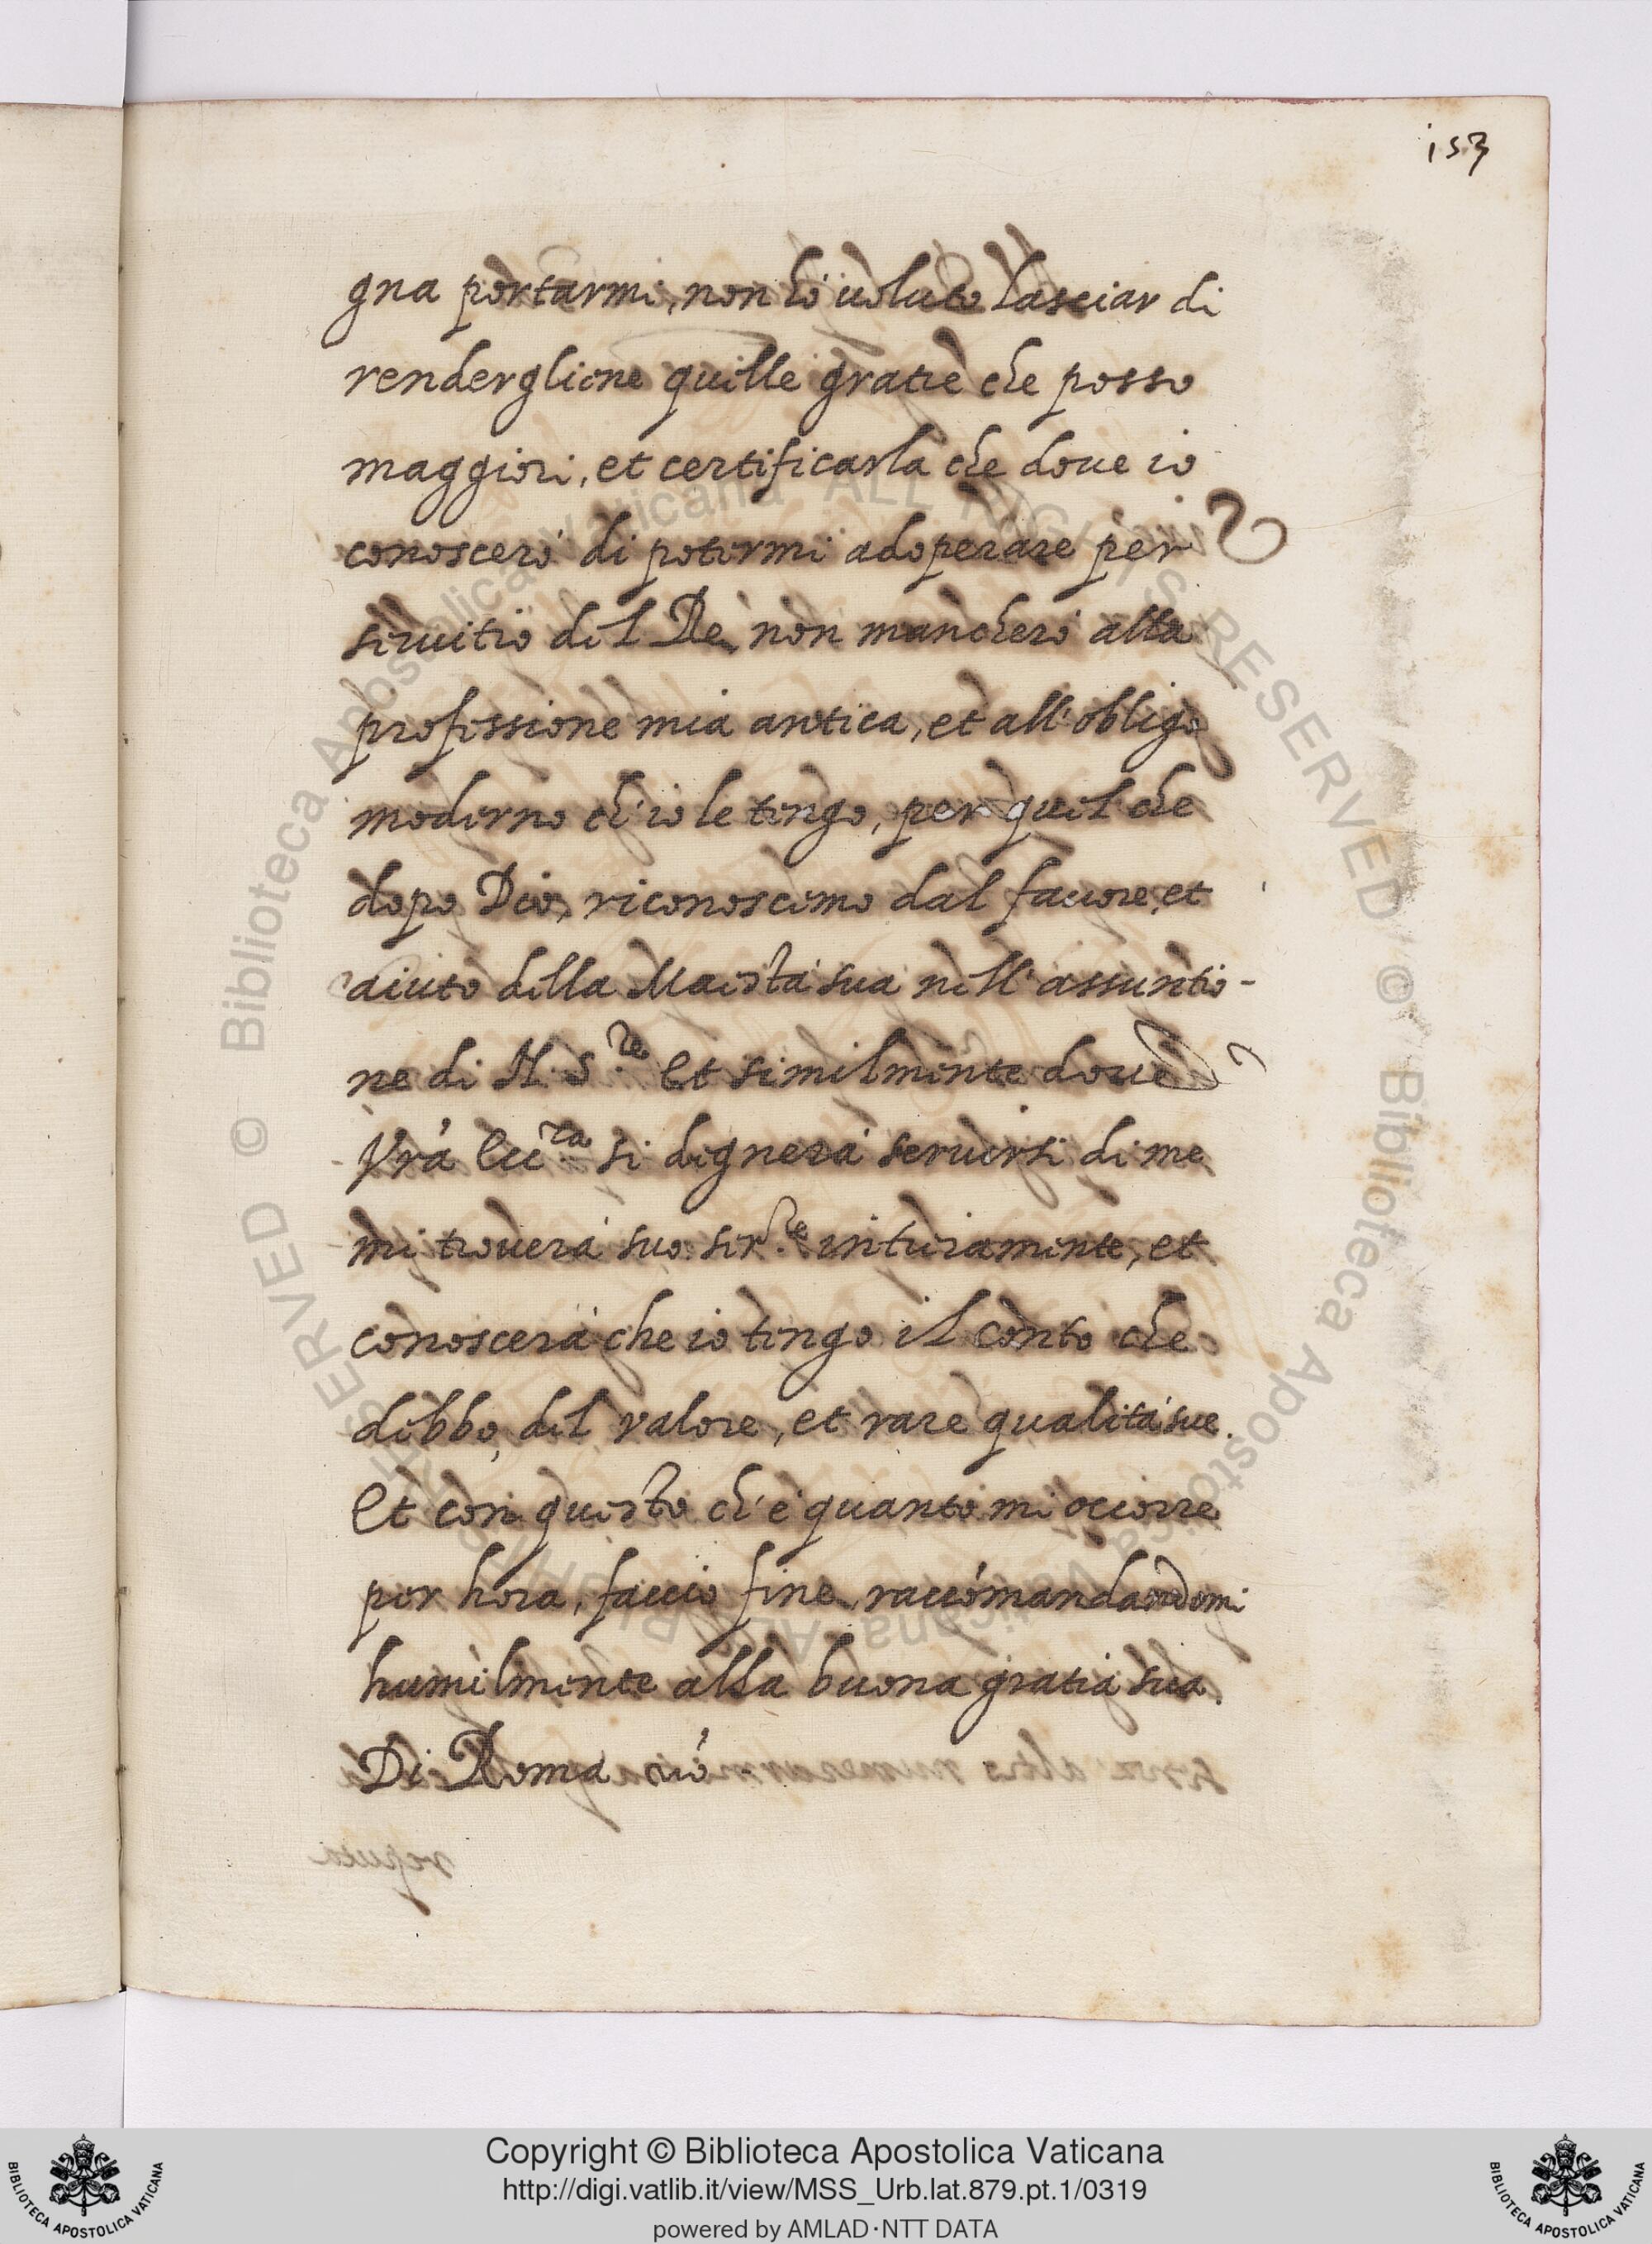 153
gna portarmi, non hó uoluto lasciar di
renderglione quelle gratie che posso
maggiori, et certificarla che doue io
conosceró di potermi adoperare per
seruitio del Re, non mancheró alla
professione mia antica, et all'obligo
moderno ch'io le tengo, per quel che
dopo Dio, riconoscemo dal fauore, et
aiuto della Maestá sua nell'assuntio-
ne di N. S.re Et similmente doue
Vrá Ecc.za si dignerá seruirsi di me
mi trouerá suo ser.re intieramente, et
conoscerá che io tengo il conto che
debbo, del valore, et rare qualitá sue.
Et con questo ch'é quanto mi occorre
per hora, faccio fine, raccómandandomi
humilmente alla buona gratia sua.
Di Roma
Copyright © Biblioteca Apostolica Vaticana
http://digi.vatlib.it/view/MSS_Urb.lat.879.pt.1/0319
powered by AMLAD·NTT DATA
BIBLIOTECA APOSTOLICA VATICANA
BIBLIOTECA APOSTOLICA VATICANA
© Biblioteca Apostolica Vaticana ALL RIGHTS RESERVED
© Biblioteca Apostolica Vaticana ALL RIGHTS RESERVED